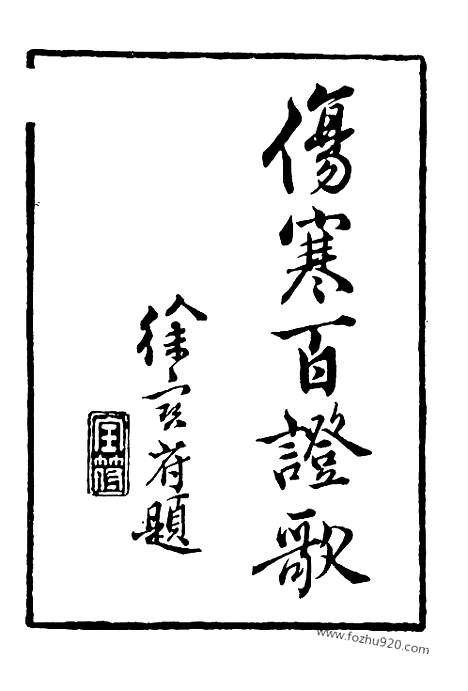 傷寒百證歌
徐題
www.fozhu920.com